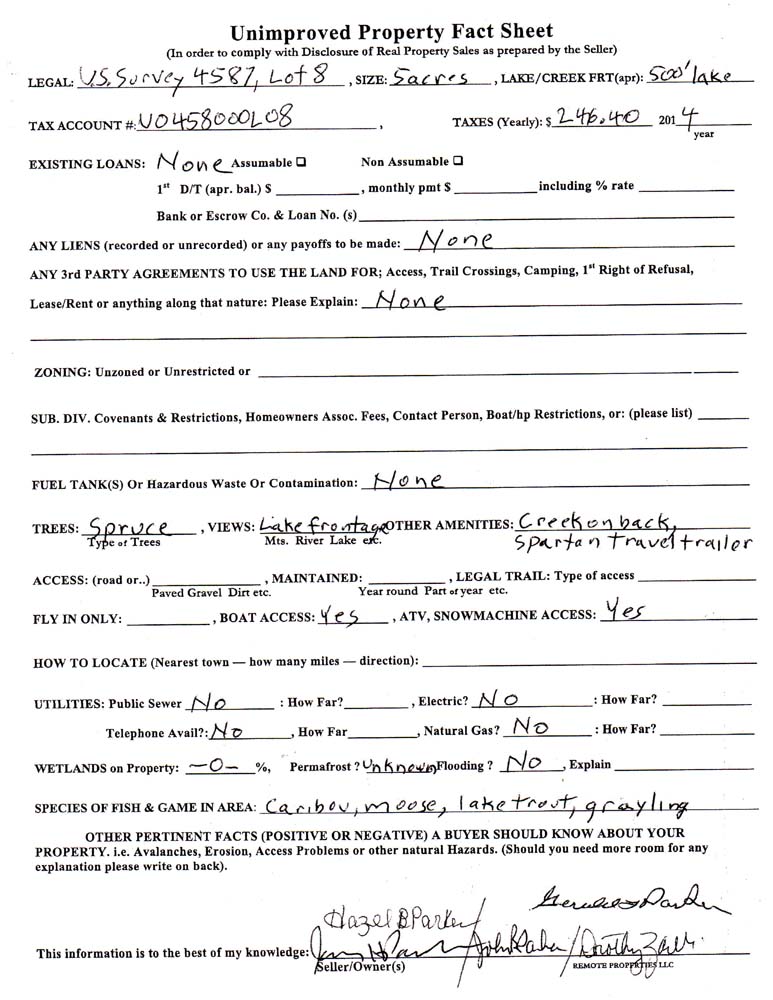 Unimproved Property Fact Sheet
(In order to comply with Disclosure of Real Property Sales as prepared by the Seller)
LEGAL: U.S. Survey 4587, Lot 8 , SIZE: 5acres , LAKE/CREEK FRT(apr): 500' lake
TAX ACCOUNT #: U0458000L08 , TAXES (Yearly): $ 246.40 2014
year
EXISTING LOANS: None Assumable ☐ Non Assumable ☐
1st D/T (apr. bal.) $ ________, monthly pmt $ ________ including % rate ________
Bank or Escrow Co. & Loan No. (s) ________
ANY LIENS (recorded or unrecorded) or any payoffs to be made: None
ANY 3rd PARTY AGREEMENTS TO USE THE LAND FOR; Access, Trail Crossings, Camping, 1st Right of Refusal,
Lease/Rent or anything along that nature: Please Explain: None
ZONING: Unzoned or Unrestricted or ________
SUB. DIV. Covenants & Restrictions, Homeowners Assoc. Fees, Contact Person, Boat/hp Restrictions, or: (please list) ________
FUEL TANK(S) Or Hazardous Waste Or Contamination: None
TREES: Spruce , VIEWS: Lake frontage OTHER AMENITIES: Creek on back,
Type of Trees Mts. River Lake etc. Spartan travel trailer
ACCESS: (road or..) ________ , MAINTAINED: ________ , LEGAL TRAIL: Type of access ________
Paved Gravel Dirt etc. Year round Part of year etc.
FLY IN ONLY: ________ , BOAT ACCESS: Yes , ATV, SNOWMACHINE ACCESS: Yes
HOW TO LOCATE (Nearest town — how many miles — direction): ________
UTILITIES: Public Sewer No : How Far? ________ , Electric? No : How Far? ________
Telephone Avail?: No , How Far ________ , Natural Gas? No : How Far? ________
WETLANDS on Property: -0- %, Permafrost ? Unknown Flooding ? No , Explain ________
SPECIES OF FISH & GAME IN AREA: Caribou, moose, lake trout, grayling
OTHER PERTINENT FACTS (POSITIVE OR NEGATIVE) A BUYER SHOULD KNOW ABOUT YOUR
PROPERTY. i.e. Avalanches, Erosion, Access Problems or other natural Hazards. (Should you need more room for any
explanation please write on back).
Hazel B Parker Parker
This information is to the best of my knowledge:
Seller/Owner(s) REMOTE PROPERTIES LLC